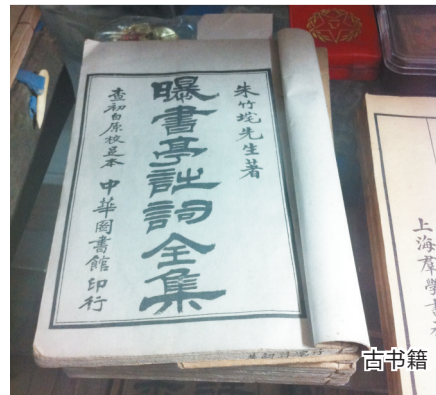 朱竹垞先生著
曝書亭註詞全集
查初白原校足本 中華圖書館印行
上海羣學書社
古书籍